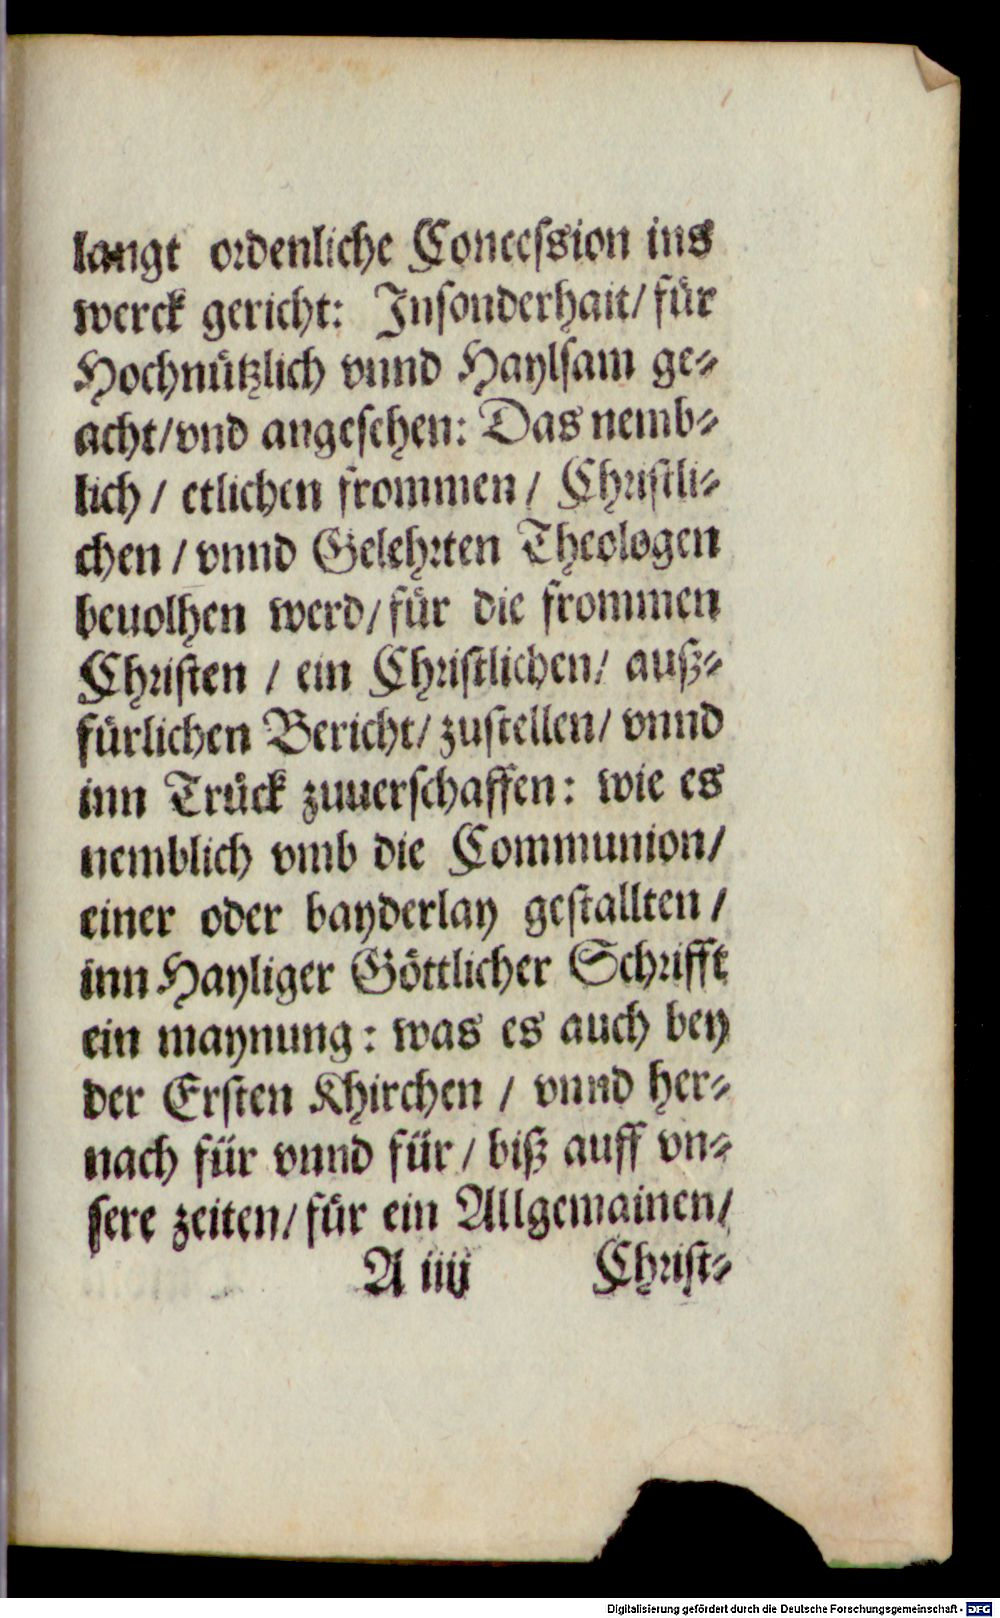 langt ordenliche Concession ins
werck gericht: Insonderhait/ für
Hochnützlich vnnd Haylsam ge-
acht/vnd angesehen: Das nemb-
lich / etlichen frommen / Christli-
chen / vnnd Gelehrten Theologen
beuolhen werd/für die frommen
Christen / ein Christlichen/ auß-
fürlichen Bericht/ zustellen/ vnnd
inn Trůck zuuerschaffen: wie es
nemblich vmb die Communion/
einer oder bayderlay gestallten /
inn Hayliger Göttlicher Schrifft
ein maynung: was es auch bey
der Ersten Khirchen / vnnd her-
nach für vnnd für / biß auff vn-
sere zeiten/für ein Allgemainen/
A iiij Christ-
Digitalisierung gefördert durch die Deutsche Forschungsgemeinschaft - DFG